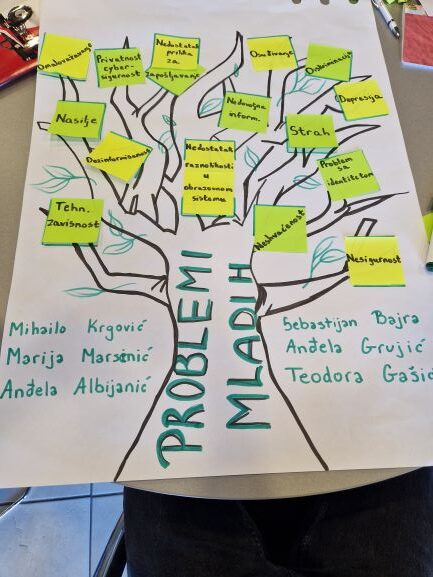 Omalovažavanje
Privatnost
cyber-
sigurnost
Nedostatak
prilika
za
zapošljavanje
Osuđivanje
Diskriminacija
Nasilje
Nedovoljna
inform.
Depresija
Dezinformisanost
Nedostatak
raznolikosti
u
obrazovnom
sistemu
Strah
Problem
sa
identitetom
Tehn.
zavisnost
Neshvaćenost
Nesigurnost
PROBLEMI
MLADIH
Mihailo Krgović
Marija Marsenić
Anđela Albijanić
Sebastijan Bajra
Anđela Grujić
Teodora Gašić